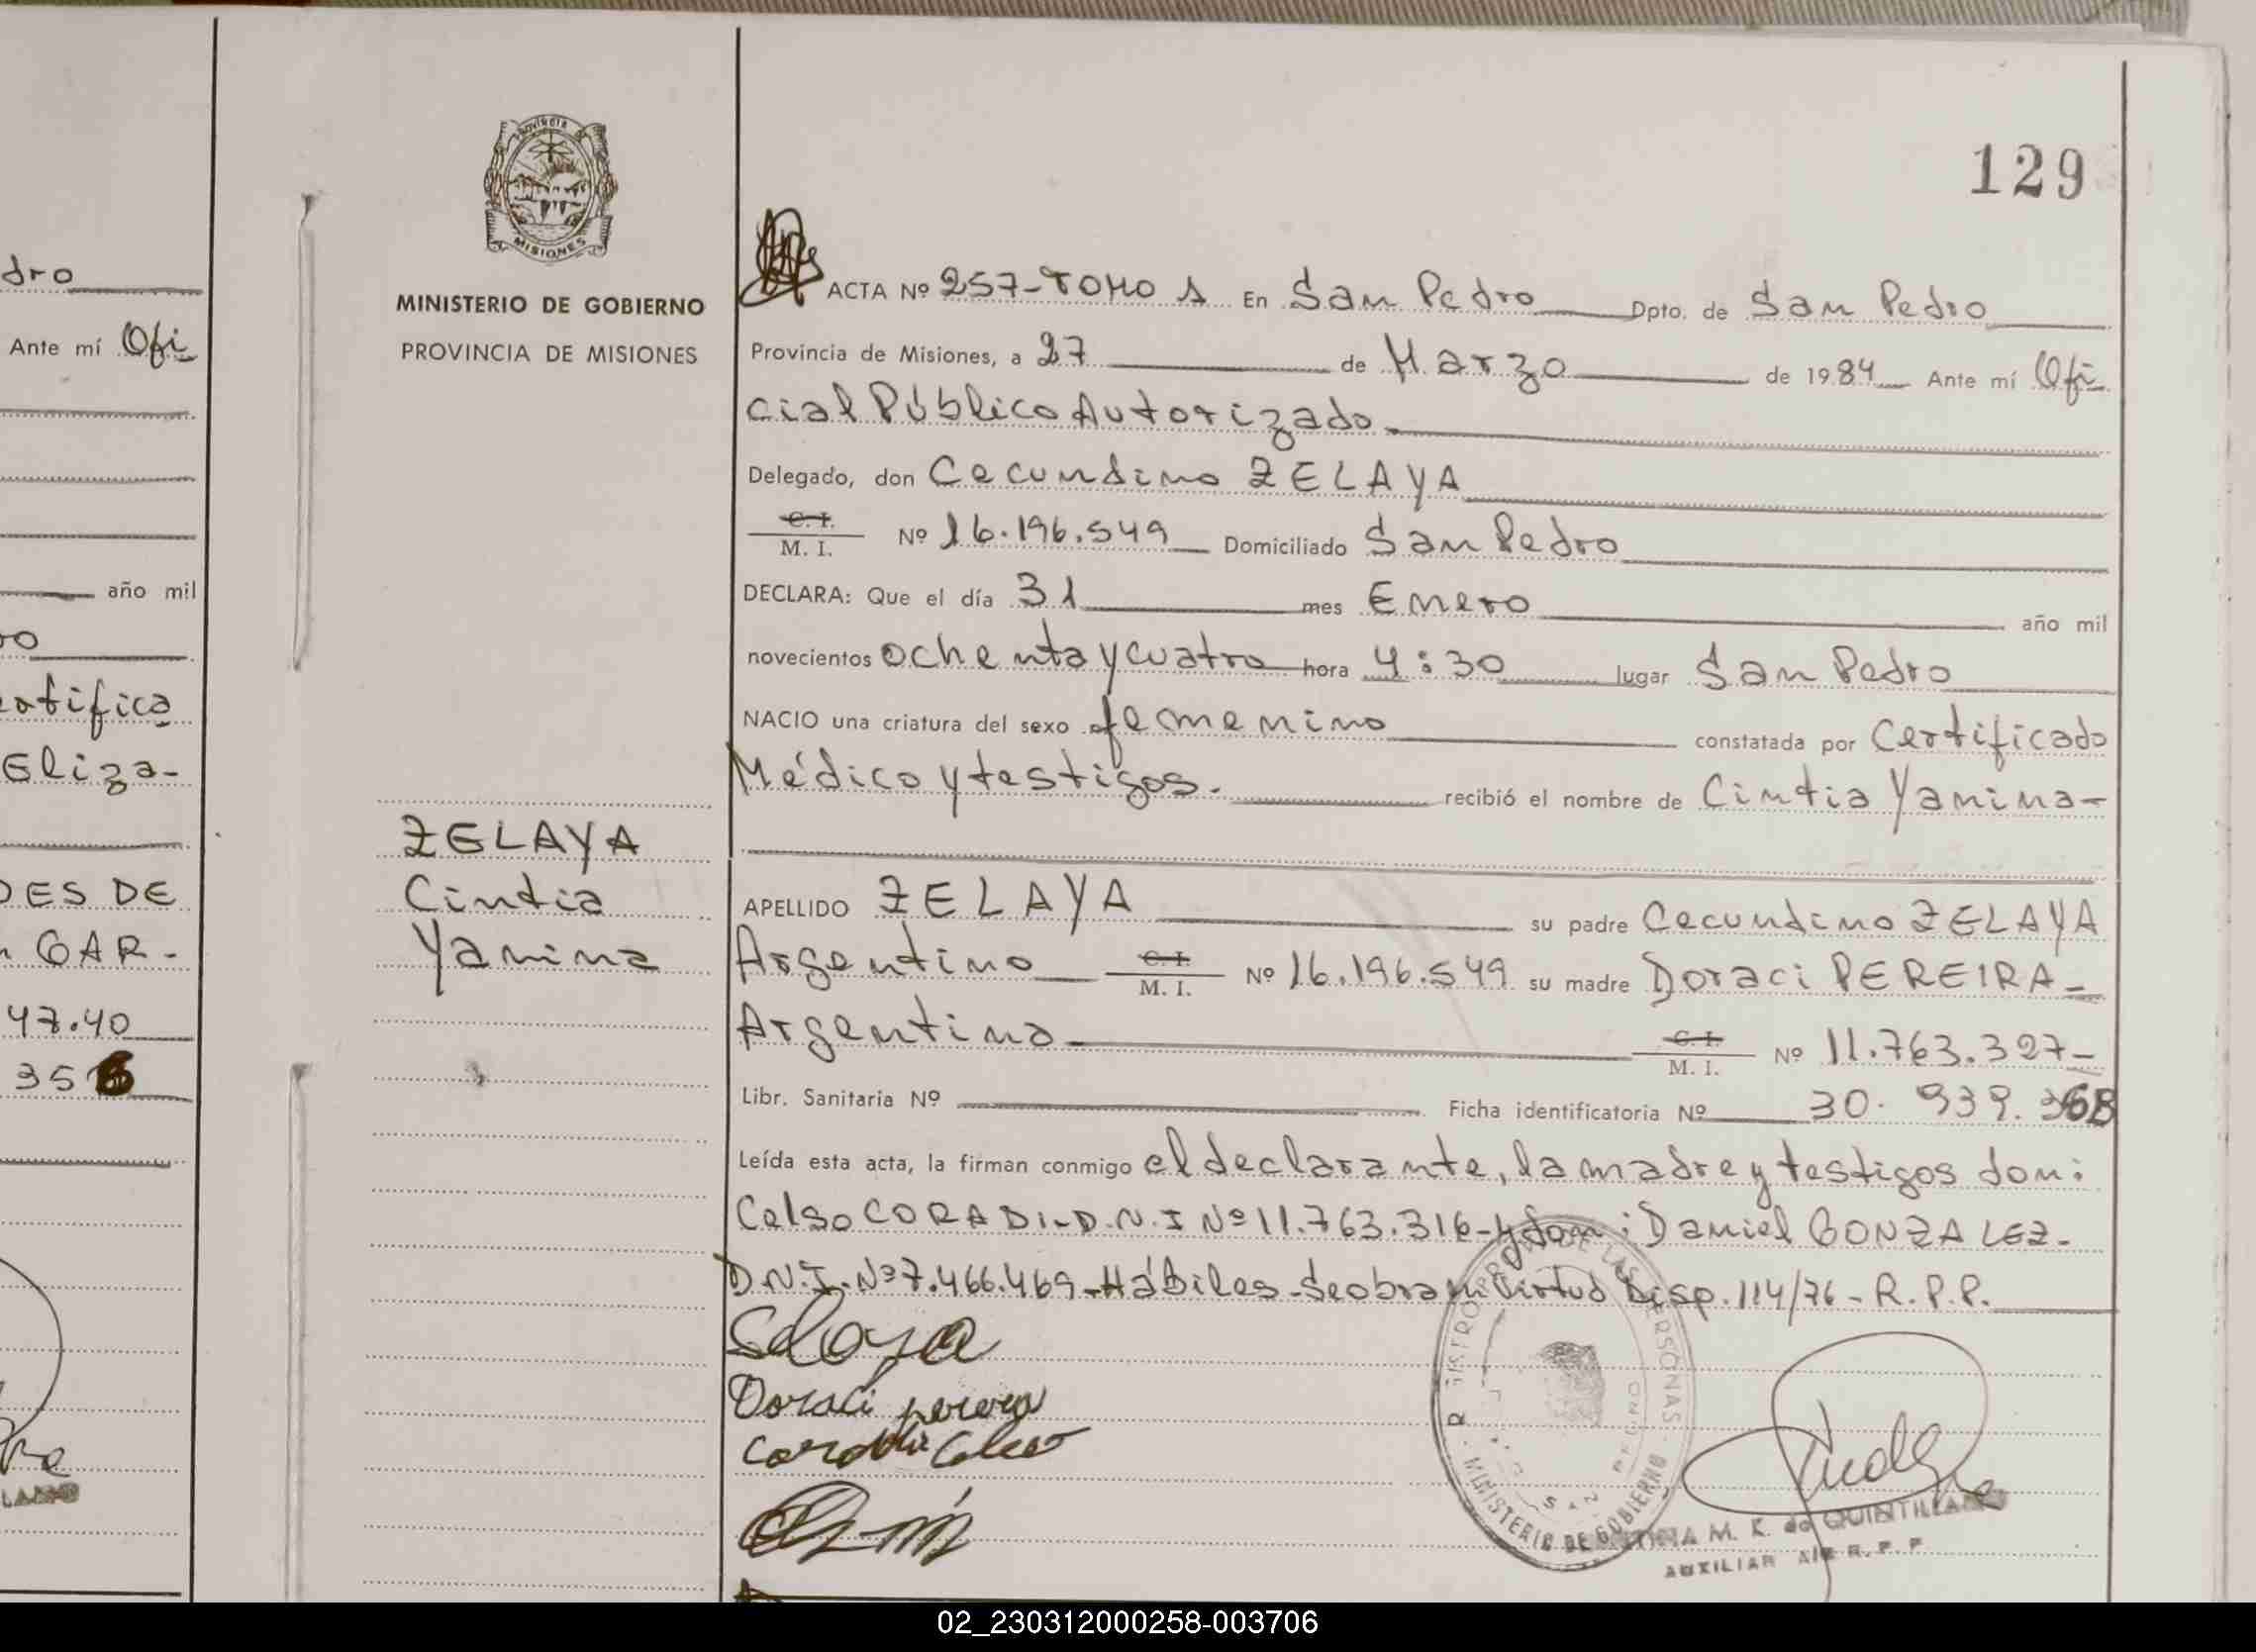 129
PROVINCIA DE
MISIONES
MINISTERIO DE GOBIERNO
PROVINCIA DE MISIONES
dro
Ante mí Ofi
año mil
ro
Eliza-
DES DE
GAR-
47.40
ZELAYA
Cintia
Yanina
ACTA Nº 257-TOMO 1 En San Pedro Dpto. de San Pedro
Provincia de Misiones, a 27 de Marzo de 1984 Ante mí Ofi
cial Público Autorizado.
Delegado, don Cecundino ZELAYA
C. I. M. I. Nº 16.196.549 Domiciliado San Pedro
DECLARA: Que el día 31 mes Enero año mil
novecientos ochenta y cuatro hora 4:30 lugar San Pedro
NACIO una criatura del sexo femenino constatada por Certificado
Médico y testigos. recibió el nombre de Cintia Yanina-
APELLIDO ZELAYA su padre Cecundino ZELAYA
Argentino C. I. M. I. Nº 16.196.549 su madre Doraci PEREIRA-
Argentina- C. I. M. I. Nº 11.763.327-
Libr. Sanitaria Nº Ficha identificatoria Nº 30. 939.
Leída esta acta, la firman conmigo el declarante, la madre y testigos don:
Celso CORADI-D.N.I Nº 11.763.316-y don: Daniel GONZALEZ-
D.N.I-Nº 7.466.469-Hábiles-Se obra en Virtud Disp. 114/76-R.P.P.
Doraci
MINISTERIO DE GOBIERNO
M. K. de QUINTILLANO
AUXILIAR
02_230312000258-003706